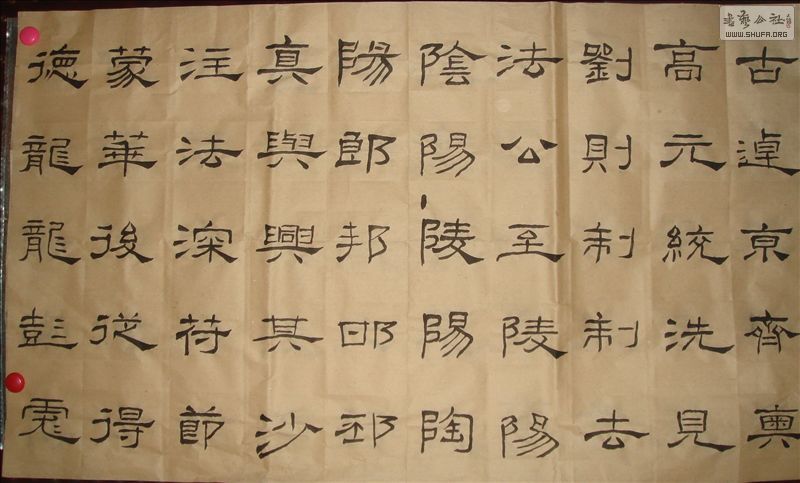 古京齊
高元統洗見
劉則制制去
法公至陵陽
陰陽陵陽陶
陽郎邦邳
真與興其沙
注法深節
蒙華後從得
德龍龍彭
书艺公社
WWW.SHUFA.ORG